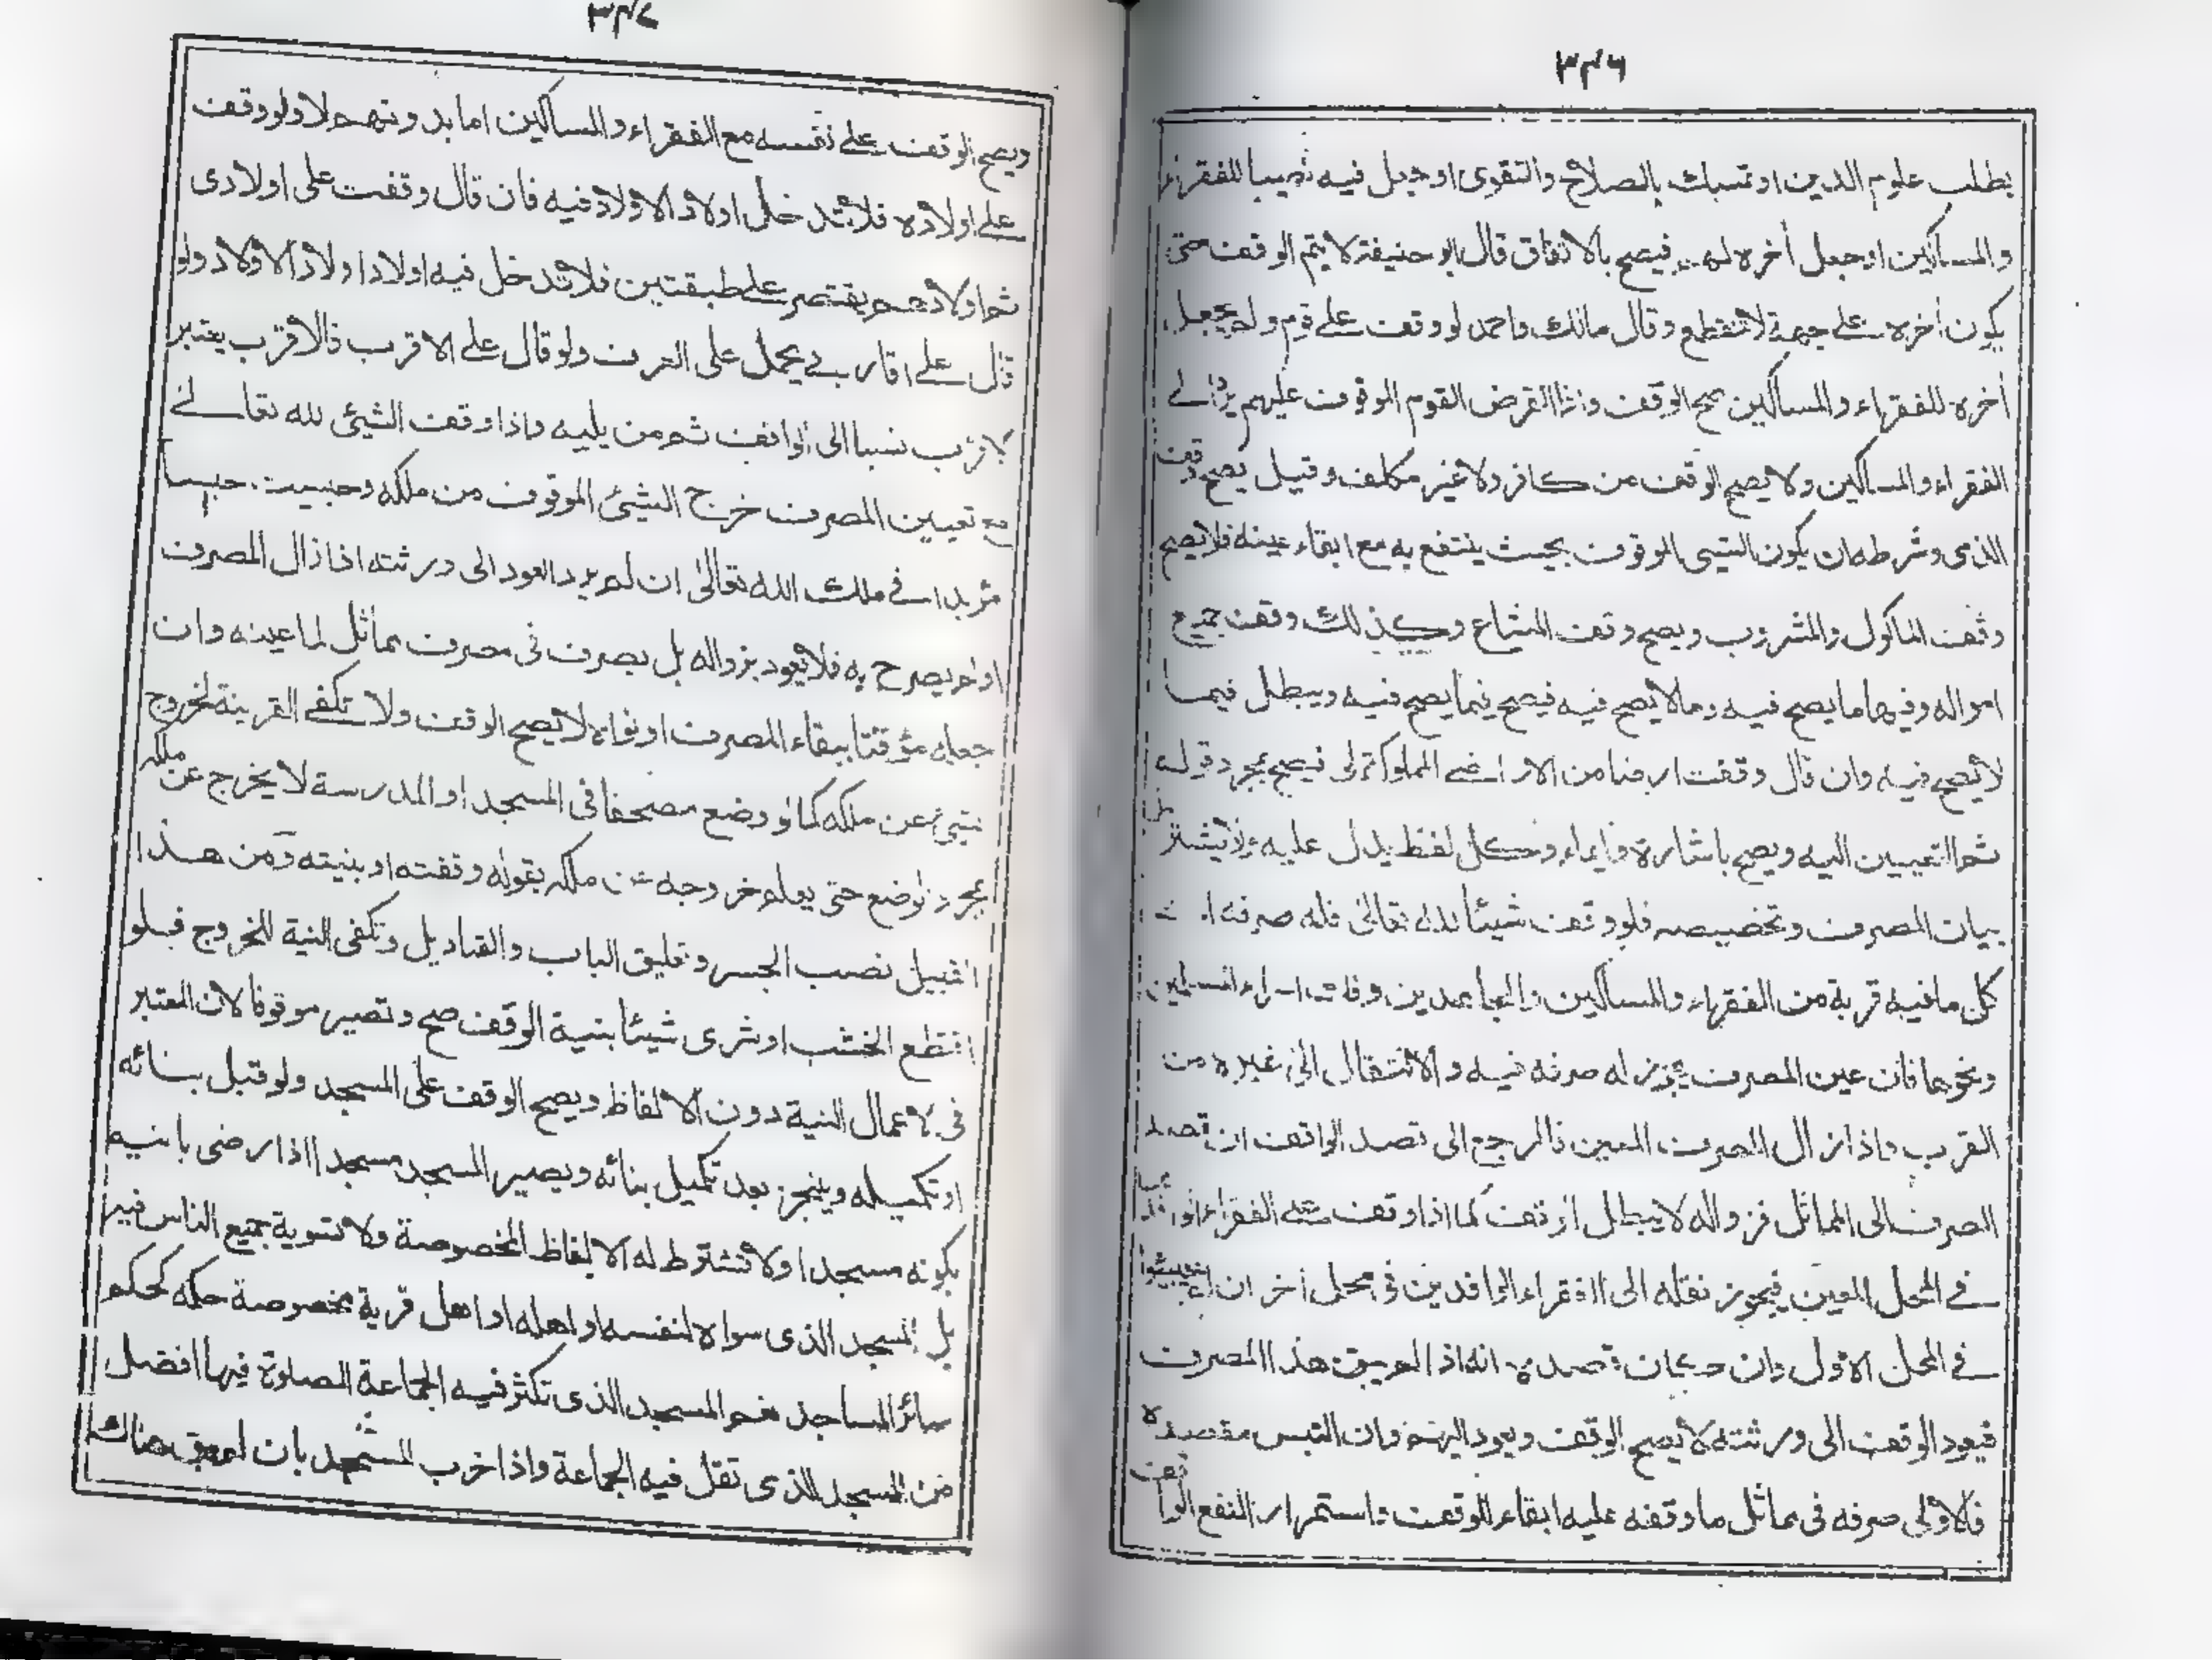 ٣٤٦
يطلب علوم الدين او تمسك بالصلاح والتقوى او جعل فيه نصيبا للفقراء
والمساكين او جعل أخره لهم فيصح بالاتفاق قال ابو حنيفة لا يتم الوقف حتى
يكون أخره على جهة لا تنقطع وقال مالك واحمد لو وقف على قوم ولم يجعل
أخره للفقراء والمساكين صح الوقف واذا انقرض القوم الموقوف عليهم يرد الى
الفقراء والمساكين ولا يصح الوقف من كافر ولا غير مكلف وقيل يصح وقف
الذمى وشرطه ان يكون الشيى الموقوف بحيث ينتفع به مع ابقاء عينه فلا يصح
وقف الماكول والمشروب ويصح وقف المشاع وكذلك وقف جميع
امواله وفيها ما يصح فيه وما لا يصح فيه فيصح فيما يصح فيه ويبطل فيما
لا يصح فيه وان قال وقفت ارضا من الاراضى المملوكة لى فيصح بمجرد قوله
ثم التعيين اليه ويصح باشارة وايماء وكل لفظ يدل عليه ولا يشترط
بيان المصرف وتخصيصه فلو وقف شيئا لله تعالى فله صرفه
كل ما فيه قربة من الفقراء والمساكين والمجاهدين وفك اسراء المسلمين
ونحوها فان عين المصرف يجوز له صرفه فيه والانتقال الى غيره من
القرب واذا زال المصرف المعين فالرجع الى قصد الواقف ان قصد
الصرف الى المماثل فزواله لا يبطل الوقف كما اذا وقف على الفقراء
فى المحل المعين فيجوز نقله الى الفقراء الوافدين فى محل أخر ان
فى المحل الاول وان كان قصده انه اذا لم يبق هذا المصرف
فيعود الوقف الى ورثته لا يصح الوقف ويعود اليهم وان التبس مقصده
فالاولى صرفه فى مماثل ما وقفه عليه ابقاء للوقف واستمرار النفع الواقف
٣٤٧
ويصح الوقف على نفسه مع الفقراء والمساكين اما بدونهم لا ولو وقف
على اولاده فلا تدخل اولاد الاولاد فيه فان قال وقفت على اولادى
ثم اولادهم يقتصر على طبقتين فلا تدخل فيه اولاد اولاد الاولاد ولو
قال على اقاربى يحمل على العرف ولو قال على الاقرب فالاقرب يعتبر
لاقرب نسبا الى الواقف ثم من يليه واذا وقف الشيئ لله تعالى
مع تعيين المصرف خرج الشيئ الموقوف من ملكه وحبست حبسا
مؤبدا فى ملك الله تعالى ان لم يرد العود الى ورثته اذا زال المصرف
او لم يصرح به فلا يعود بزواله بل يصرف فى مصرف مماثل لما عينه وان
جعله مؤقتا ببقاء المصرف او نواه لا يصح الوقف ولا تكفى القرينة لخروج
شيئ عن ملكه كما لو وضع مصحفا فى المسجد او المدرسة لا يخرج عن ملكه
بمجرد الوضع حتى يعلم خروجه عن ملكه بقوله وقفته او بنيته ومن هذا
القبيل نصب الجسر وتعليق الباب والقناديل وتكفى النية للخروج فلو
اقتطع الخشب او شرى شيئا بنية الوقف صح وتصير موقوفا لان المعتبر
فى الاعمال النية دون الالفاظ ويصح الوقف على المسجد ولو قبل بنائه
او تكميله وينجز بعد تكميل بنائه ويصير المسجد مسجدا اذا رضى بانيه
بكونه مسجدا ولا تشترط له الالفاظ المخصوصة ولا تسوية جميع الناس فيه
بل المسجد الذى سواه لنفسه او اهله او اهل قرية مخصوصة حكمه كحكم
سائر المساجد نعم المسجد الذى تكثر فيه الجماعة الصلوة فيها افضل
من المسجد الذى تقل فيه الجماعة واذا خرب المسجد بان لم يبق هناك